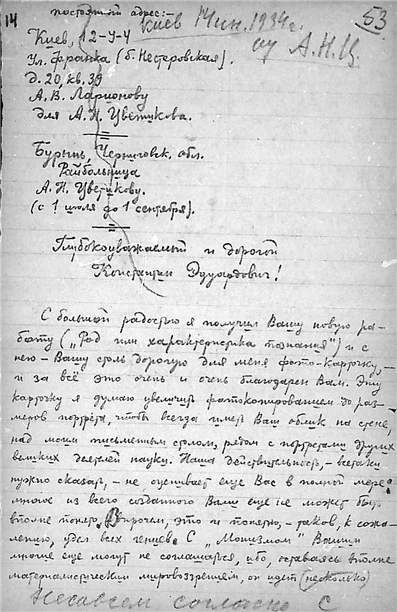 14
постоянный адрес:—
Киев 14 ин. 1934 г.
53
Киев, 12-У-4
от А.Н.Ц.
Ул. Франка (б. Нестеровская).
Д. 20, кв. 39
А. В. Ларионову
для А. Н. Цветикова.
Бурынь, Черниговск. обл.
Райбольница
А. Н. Цветикову.
(с 1 июля до 1 сентября).
Глубокоуважаемый и дорогой
Константин Эдуардович!
С большой радостью я получил Вашу новую ра-
боту („Ряд или характеристика познания") и с
нею — Вашу столь дорогую для меня фото-карточку, —
и за всё это очень и очень благодарен Вам. Эту
карточку я думаю увеличить фотокопированием до раз-
меров портрета, чтобы всегда иметь Ваш облик на стене,
над моим письменным столом, рядом с портретами других
великих деятелей науки. Наша действительность, — всё-таки
нужно сказать, — не оценивает еще Вас в полной мере:
многое из всего созданного Вами еще не может быть
вполне понято. Впрочем, это и понятно, — таков, к сожа-
лению, удел всех гениев. С „Монизмом" Вашим
многие еще могут не соглашаться, ибо, оставаясь вполне
материалистическим мировоззрением, он идет (несколько)
Несовсем согласно с